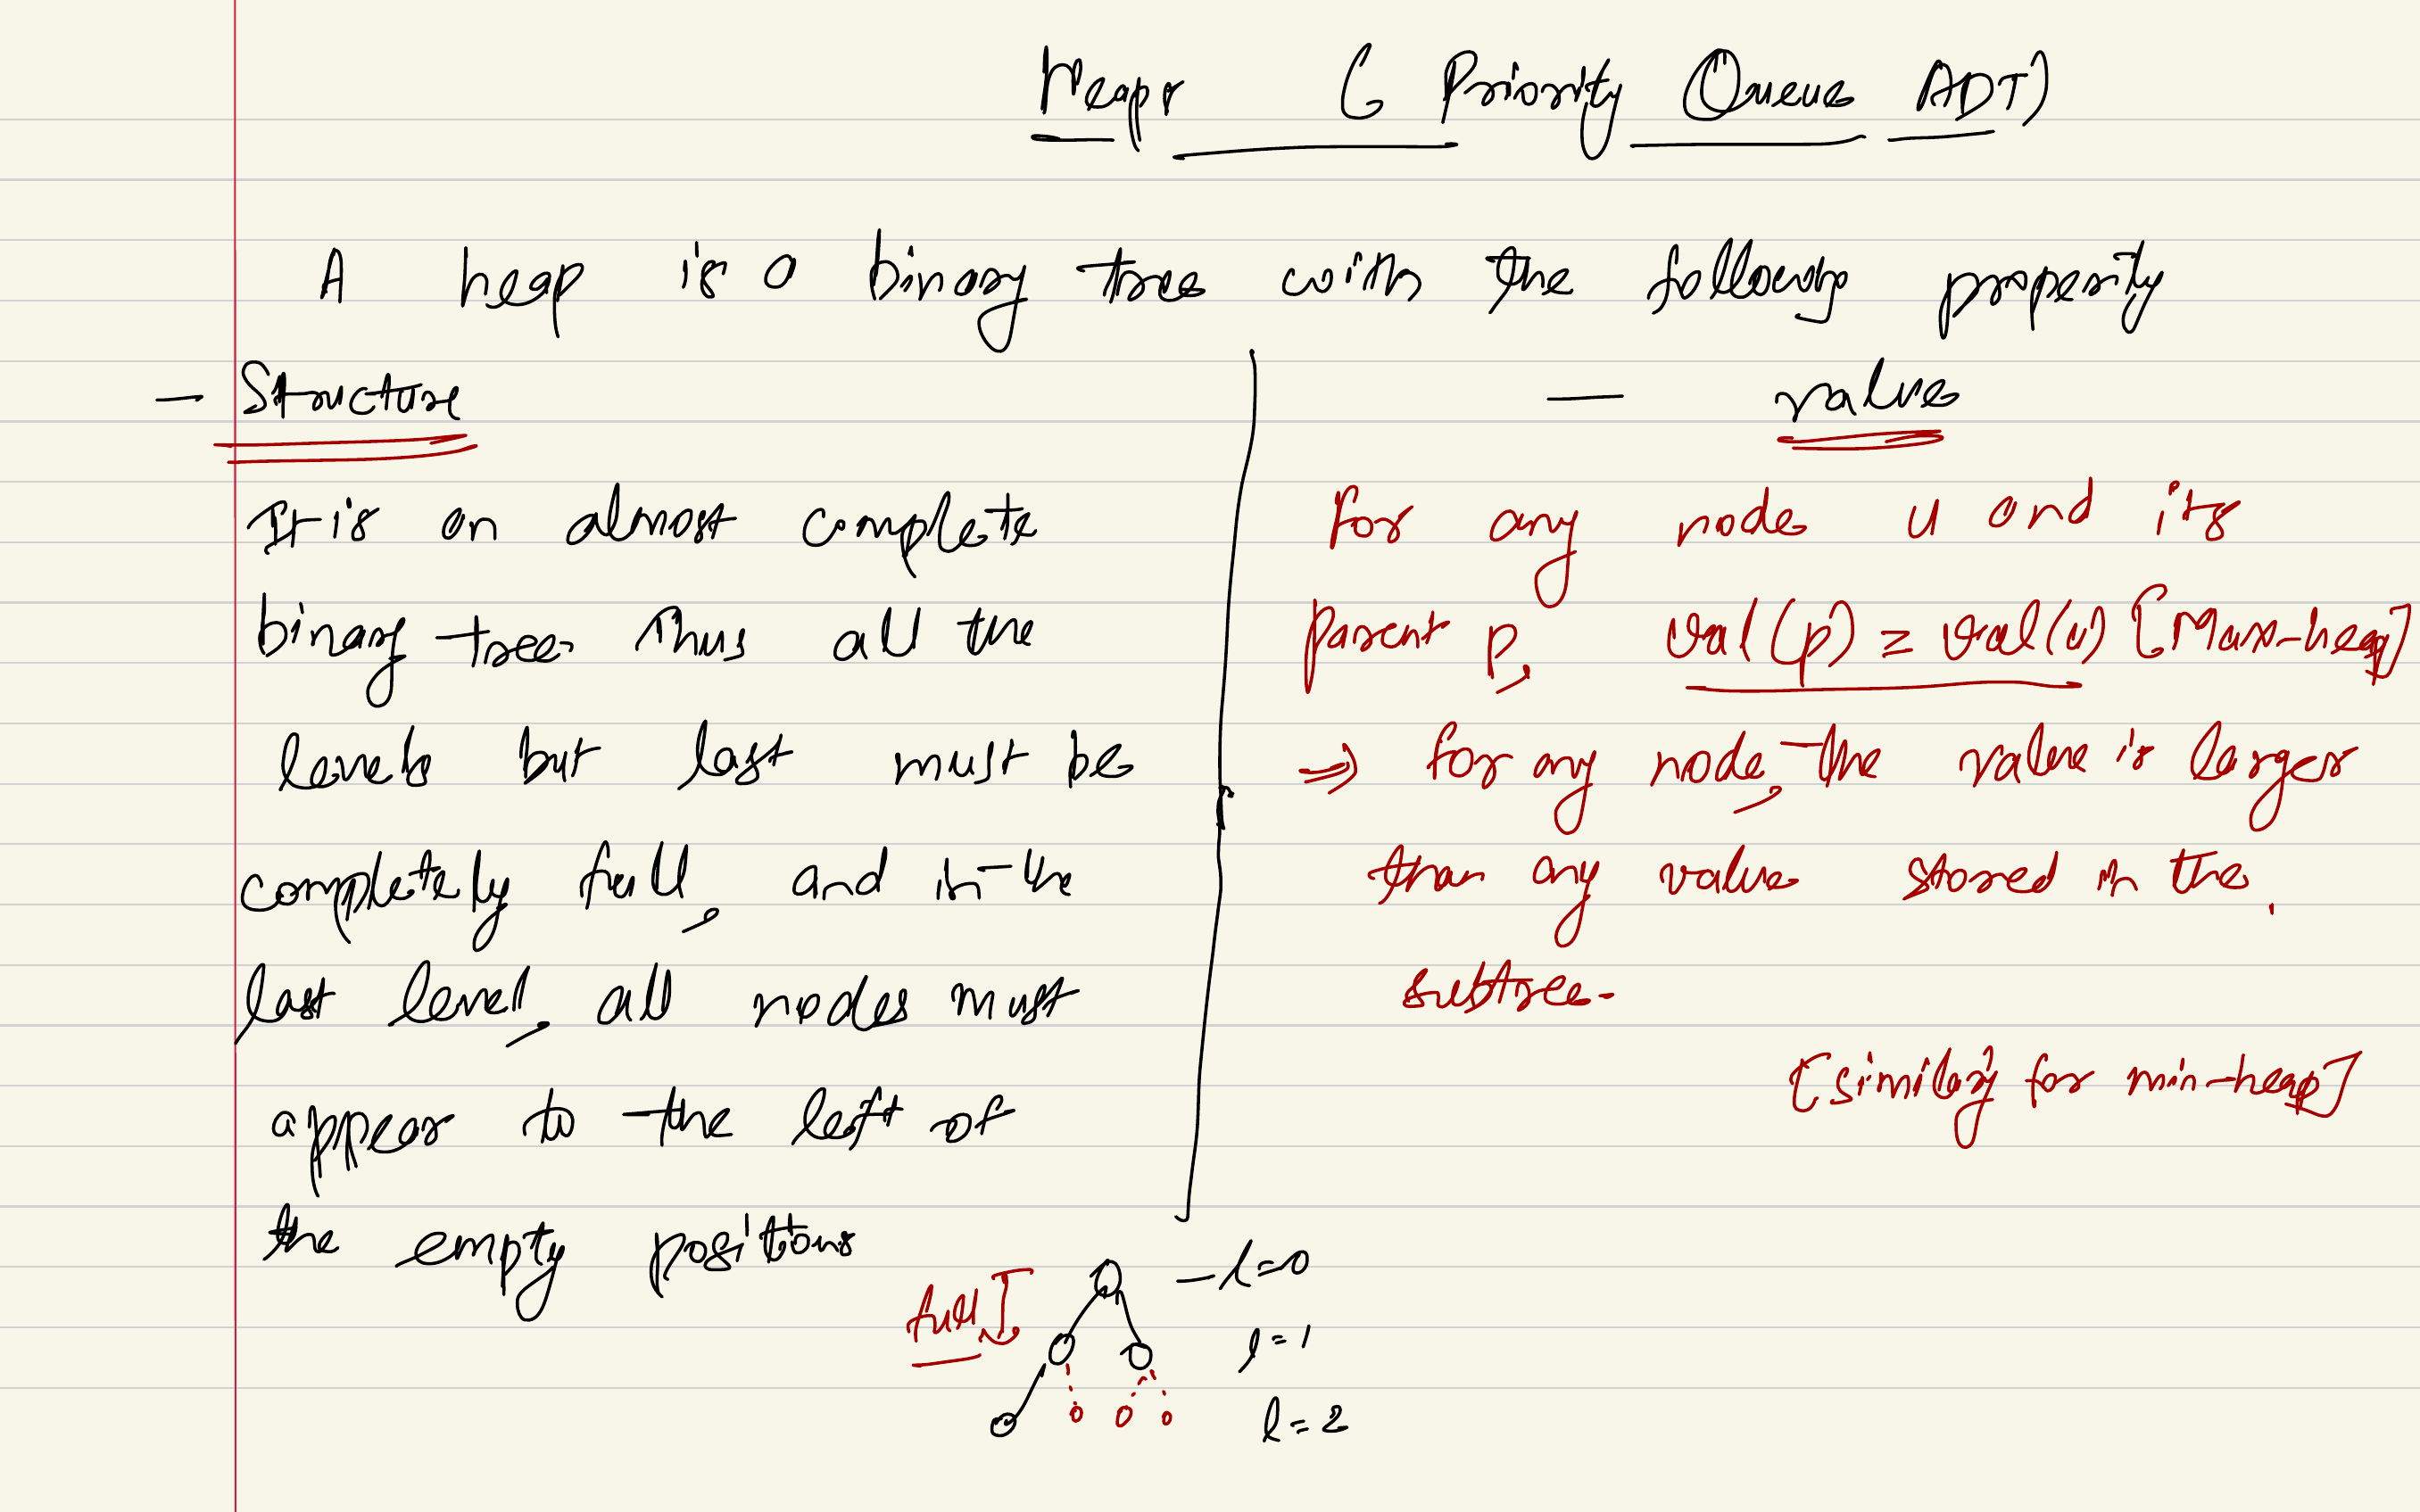 Heaps (Priority Queue ADT)
A heap is a binary tree with the following property
- Structure
It is an almost complete
binary tree. Thus all the
levels but last must be
completely full, and in the
last level, all nodes must
appear to the left of
the empty positions
- value
For any node u and its
parent p, val(p) ≥ val(u) [Max-heap]
⇒ for any node, the value is larger
than any value stored in the
subtree.
[similarly for min-heap]
full
l=0
l=1
l=2